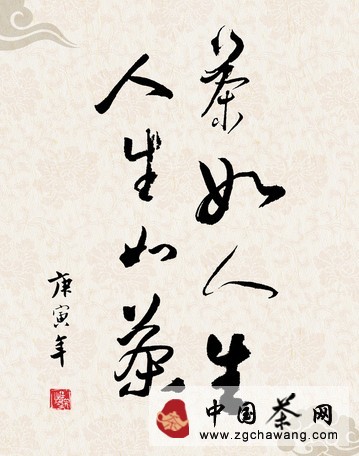 茶如人生
人生如茶
庚寅年
中国茶网
www.zgchawang.com